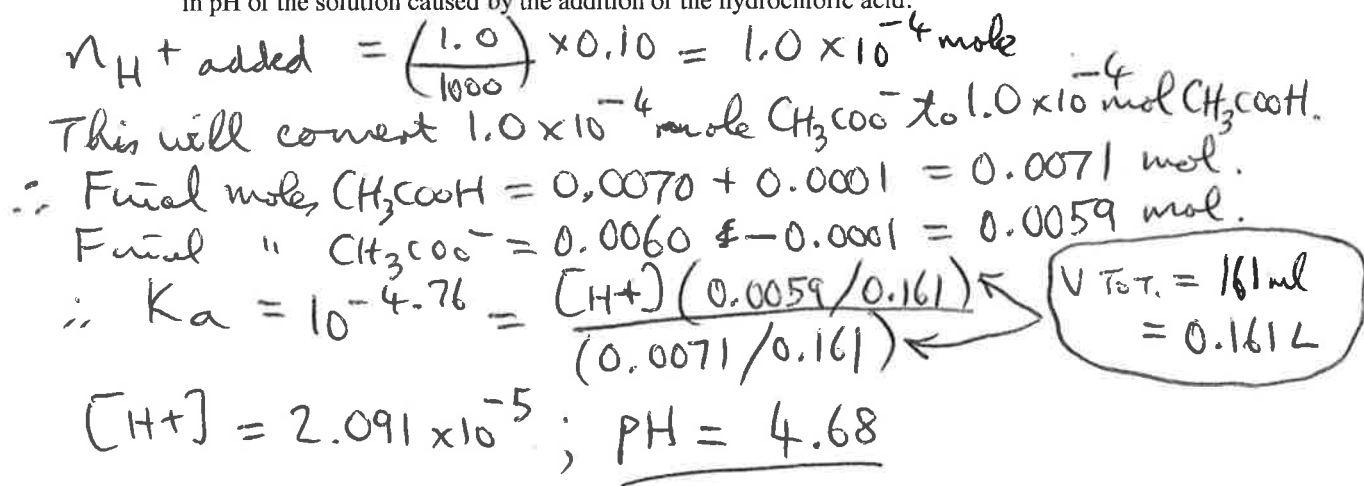 in pH of the solution caused by the addition of the hydrochloric acid.
nH+ added = (1.0/1000) ×0.10 = 1.0 ×10⁻⁴ mole
This will convert 1.0×10⁻⁴ mole CH₃COO⁻ to 1.0×10⁻⁴ mol CH₃COOH.
∴ Final moles CH₃COOH = 0.0070 + 0.0001 = 0.0071 mol.
Final " CH₃COO⁻ = 0.0060 - 0.0001 = 0.0059 mol.
∴ Ka = 10⁻⁴·⁷⁶ = [H+](0.0059/0.161)/(0.0071/0.161)
V TOT. = 161 ml
= 0.161 L
[H+] = 2.091 ×10⁻⁵ ; pH = 4.68